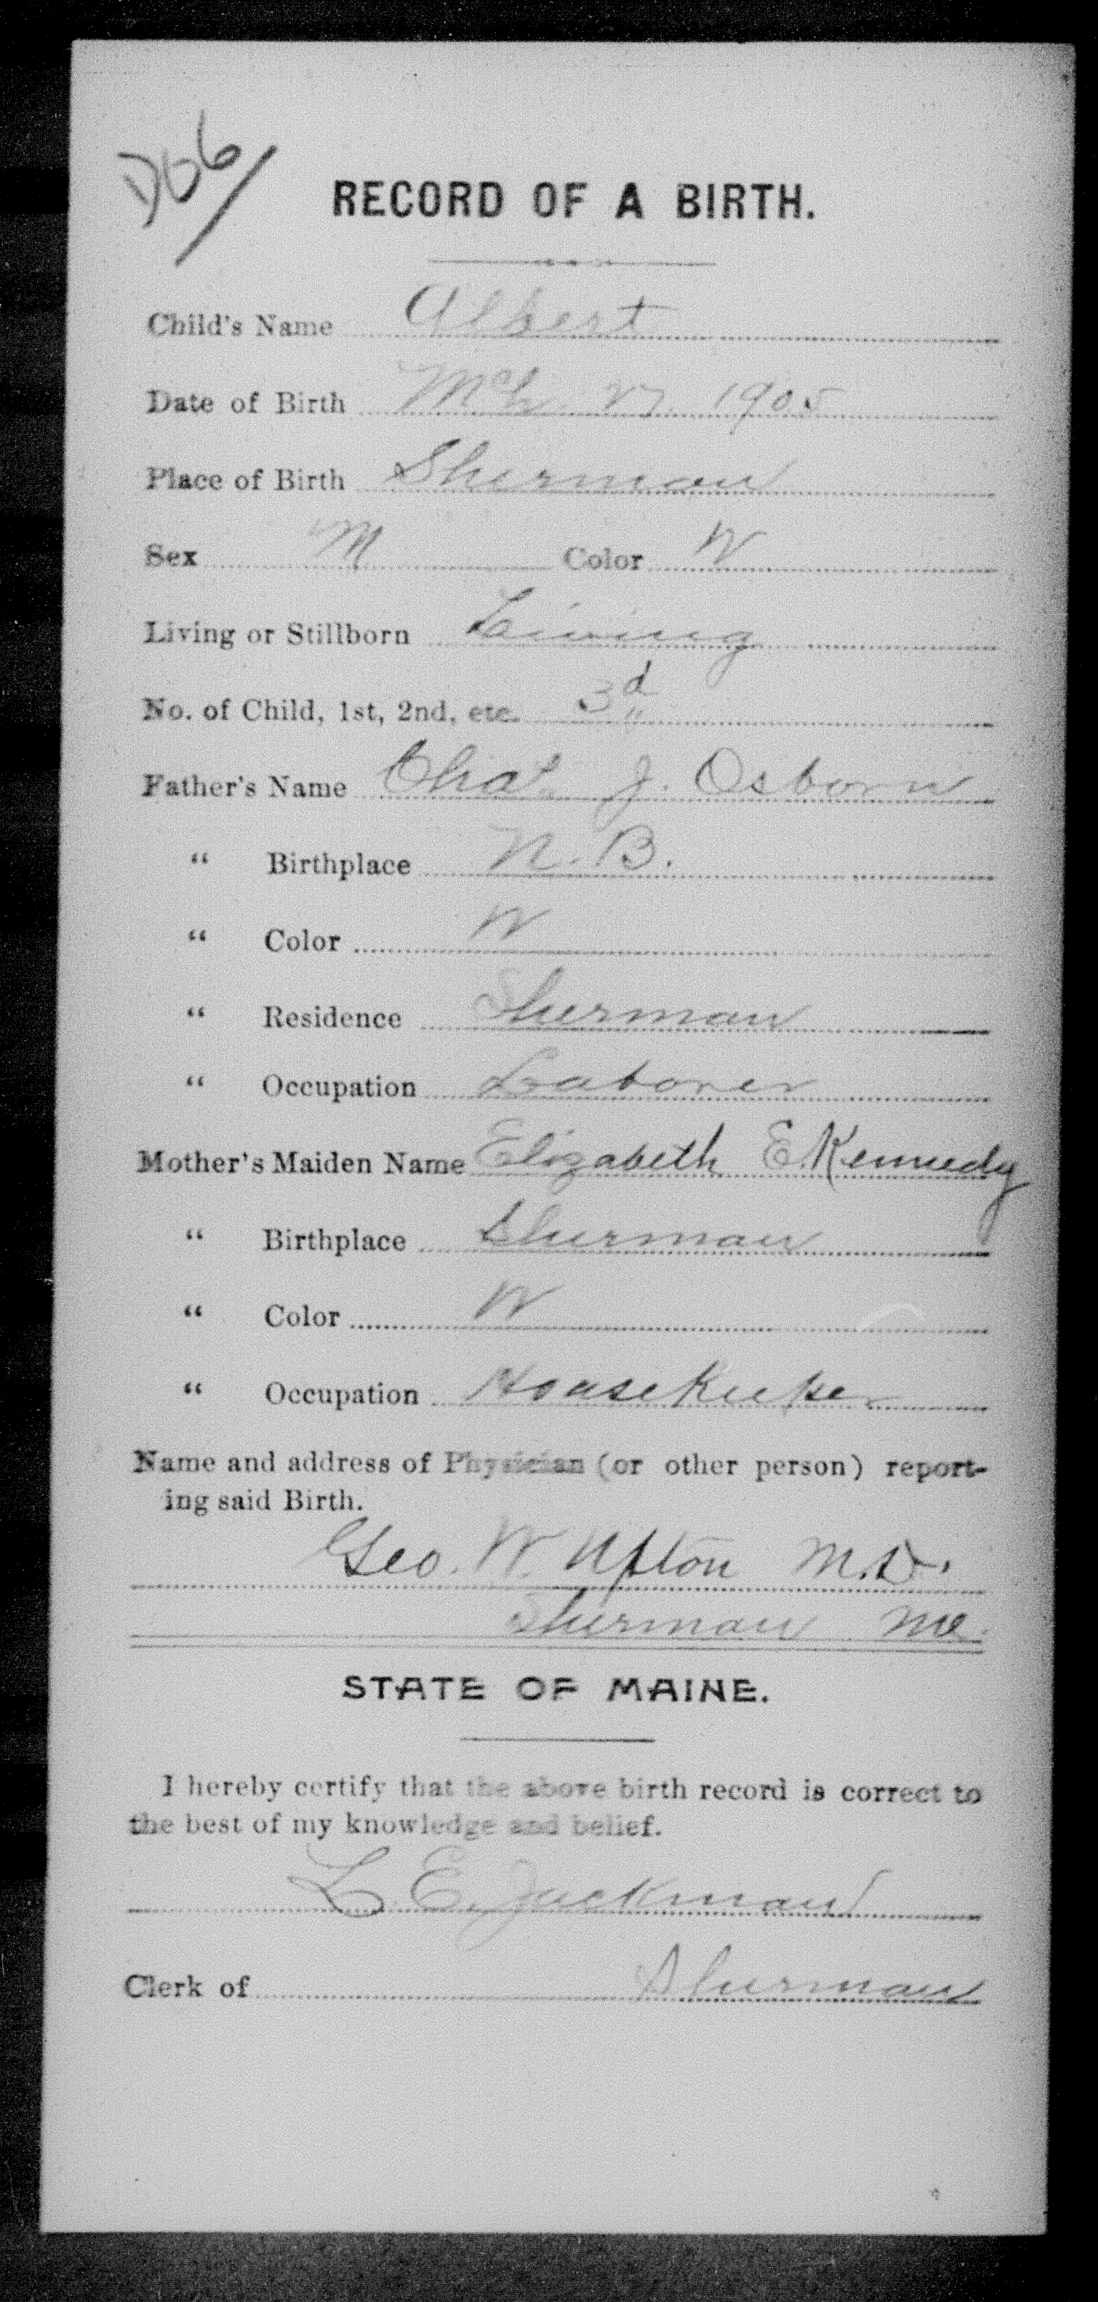 D66/
RECORD OF A BIRTH.
Child's Name Albert
Date of Birth Mch. 27 1905
Place of Birth Sherman
Sex M Color W
Living or Stillborn Living
No. of Child, 1st, 2nd, etc. 3d
Father's Name Chas. J. Osborn
“ Birthplace N.B.
“ Color W
“ Residence Sherman
“ Occupation Laborer
Mother's Maiden Name Elizabeth E. Kennedy
“ Birthplace Sherman
“ Color W
“ Occupation Housekeeper
Name and address of Physician (or other person) report-
ing said Birth.
Geo. W. Upton M.D.
Sherman Me.
STATE OF MAINE.
I hereby certify that the above birth record is correct to
the best of my knowledge and belief.
L. E. Jackman
Clerk of Sherman